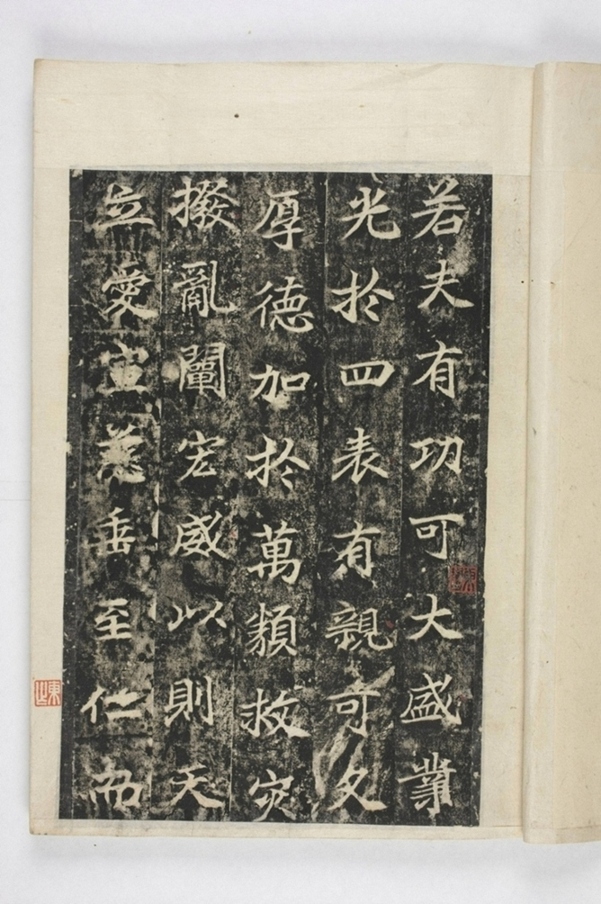 若夫有功可大盛業
光於四表有親可久
厚德加於萬類救灾
撥亂闡宏威以則天
立愛宣慈垂至仁而